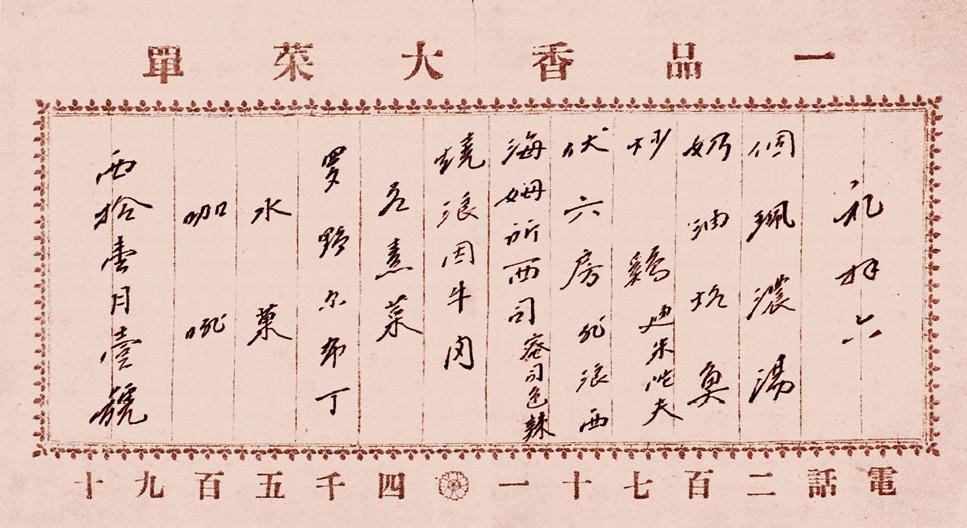 一品香大菜單
礼拜六
個珮濃湯
奶油炆魚
炒鷄迪米咜夫
伏六房 浪西
海姆所西司 司色辣
燒浪因牛肉
各素菜
罗野尔布丁
水菓
咖啡
西拾壹月壹號
電話二百七十一 四千五百九十